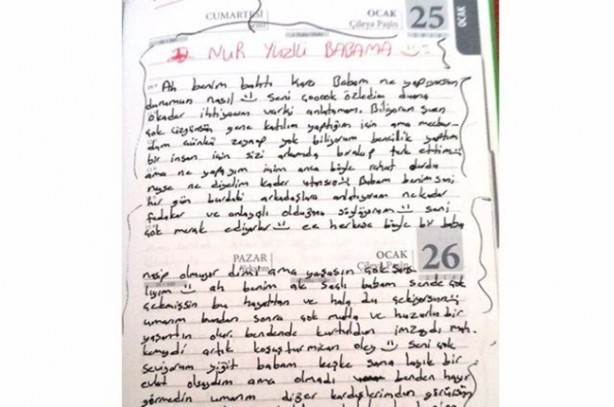 CUMARTESİ OCAK 25
Çileya Paşîn
OCAK
NUR YÜZLÜ BABAMA
Ah benim bahtı kara Babam ne yapıyorsun
durumun nasıl seni çoocok özledim duana
okadar ihtiyacım varki anlatamam. Biliyorum şuan
çok üzgünsün gene katılım yaptığım için ama mecbur-
dum çünkü biliyorum bencillik yaptım
bir insan için sizi arkamda bırakıp terk ettim
ama ne yapayım içim anca böyle rahat durdu
neyse ne diyelim kader utansın Babam benim seni
her gün burdaki arkadaşlara anlatıyorum nekadar
fedakar ve anlayışlı olduğunu söylüyorum seni
çok merak ediyorlar ee herkese böyle bir baba
PAZAR OCAK 26
Yekşem Çileya Paşîn
nasip olmuyor dimi ama yaşasın çok şans
lıyım ah benim ak saçlı babam sende çok
çekmişsin bu hayattan ve hala da çekiyorsun
umarım bundan sonra çok mutlu ve huzurlu bir
yaşantın olur. bendende kurtuldun imzaydı mah
kemeydi artık koşuşturmican oley seni çok
seviyorum yiğit babam keşke sana layık bir
evlat olsaydım ama olmadı benden hayır
görmedin umarım diğer kardeşlerimden görürsün